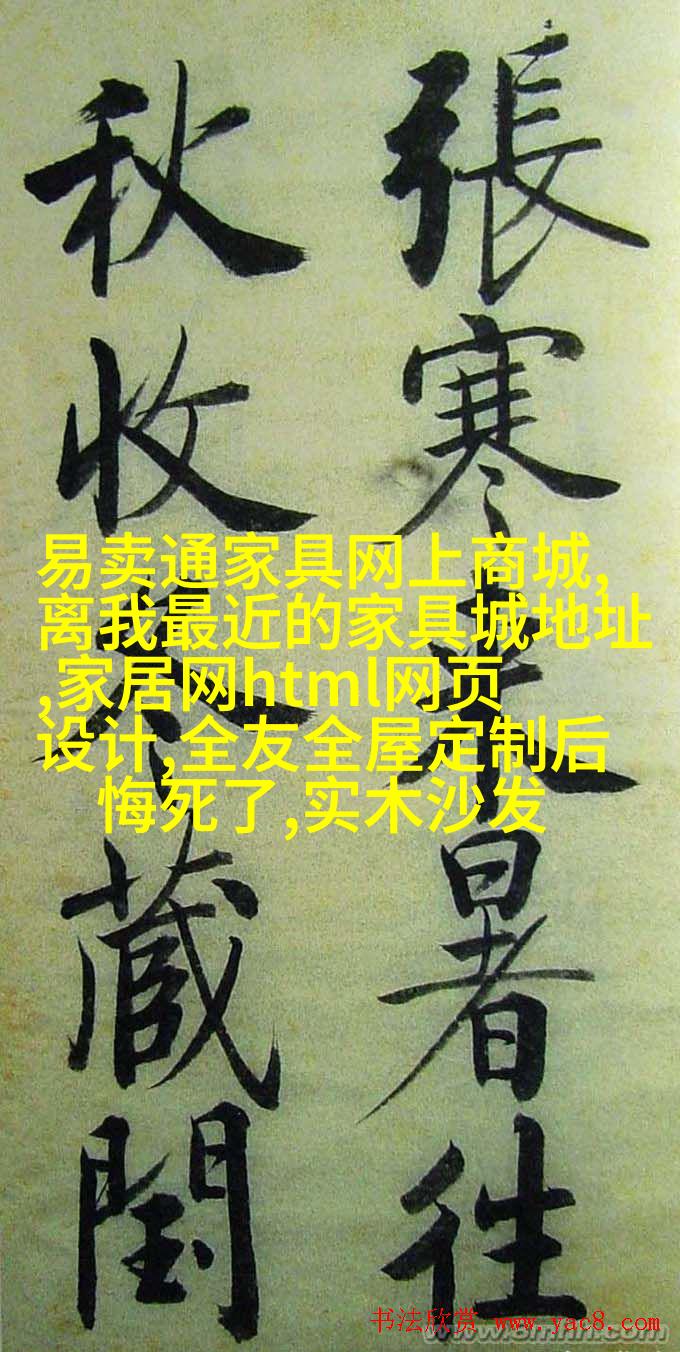 張寒来暑往
秋收冬藏閏
易卖通家具网上商城,
离我最近的家具城地址
,家居网html网页
设计,全友全屋定制后
悔死了,实木沙发
书法欣赏 www.yac8.com